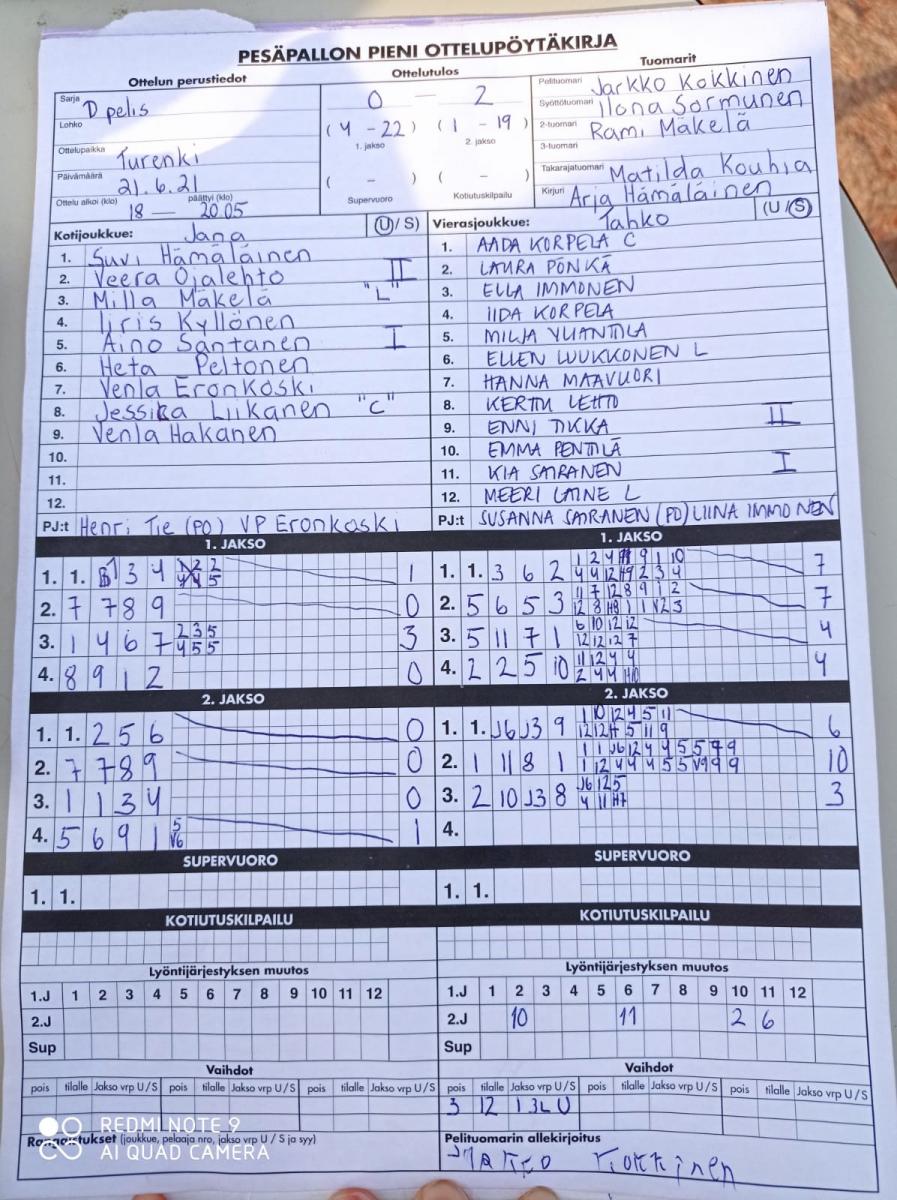 PESÄPALLON PIENI OTTELUPÖYTÄKIRJA
Ottelun perustiedot
Sarja D pelis
Lohko
Ottelupaikka Turenki
Päivämäärä 21.6.21
Ottelu alkoi (klo) päättyi (klo)
18 — 20.05
Ottelutulos
0 — 2
(4 - 22) (1 - 19)
1. jakso 2. jakso
( - ) ( - )
Supervuoro Kotiutuskilpailu
Tuomarit
Pelituomari Jarkko Kokkinen
Syöttötuomari Ilona Sormunen
2-tuomari Rami Mäkelä
3-tuomari
Takarajatuomari Matilda Kouhia
Kirjuri Arja Hämäläinen
Kotijoukkue: Jana (U/S)
1. Suvi Hämäläinen
2. Veera Ojalehto II
3. Milla Mäkelä "L"
4. Iiris Kyllönen
5. Aino Santanen I
6. Heta Peltonen
7. Venla Eronkoski
8. Jessika Liikanen "C"
9. Venla Hakanen
10.
11.
12.
PJ:t Henri Tie (PO) VP Eronkoski
Vierasjoukkue: Tahko (U/S)
1. AADA KORPELA C
2. LAURA PÖNKÄ
3. ELLA IMMONEN
4. IIDA KORPELA
5. MILJA
6. ELLEN LUUKKONEN L
7. HANNA MAAVUORI
8. KERTTU LEHTO
9. ENNI TIKKA II
10. EMMA PENTTILÄ
11. KIA SAIRANEN I
12. MEERI LAINE L
PJ:t SUSANNA SAIRANEN (PO) LIINA IMMONEN
1. JAKSO
1. 1. 3 4 1
2. 7 7 8 9 0
3. 1 4 6 7 2 3 5 3
4 5 5
4. 8 9 1 2 0
2. JAKSO
1. 1. 2 5 6 0
2. 7 7 8 9 0
3. 1 1 3 4 0
4. 5 6 9 1 5 1
V6
SUPERVUORO
1. 1.
KOTIUTUSKILPAILU
Lyöntijärjestyksen muutos
1.J 1 2 3 4 5 6 7 8 9 10 11 12
2.J
Sup
Vaihdot
pois tilalle Jakso vrp U/S pois tilalle Jakso vrp U/S pois tilalle Jakso vrp U/S
Rangaistukset (joukkue, pelaaja nro, jakso vrp U/S ja syy)
1. JAKSO
1. 1. 3 6 2 7
2. 5 6 5 3 7
3. 5 11 7 1 6 10 12 12 4
12 12 12 7
4. 2 2 5 10 11 12 4 4 4
2 4 4
2. JAKSO
1. 1. J6 J3 9 1 10 12 4 5 11 6
2. 1 11 8 1 10
3. 2 10 J3 8 J6 12 5 3
4 11 H7
4.
SUPERVUORO
1. 1.
KOTIUTUSKILPAILU
Lyöntijärjestyksen muutos
1.J 1 2 3 4 5 6 7 8 9 10 11 12
2.J 10 11 2 6
Sup
Vaihdot
pois tilalle Jakso vrp U/S pois tilalle Jakso vrp U/S pois tilalle Jakso vrp U/S
3 12 1 3L U
Pelituomarin allekirjoitus
Jarkko Kokkinen
REDMI NOTE 9
AI QUAD CAMERA